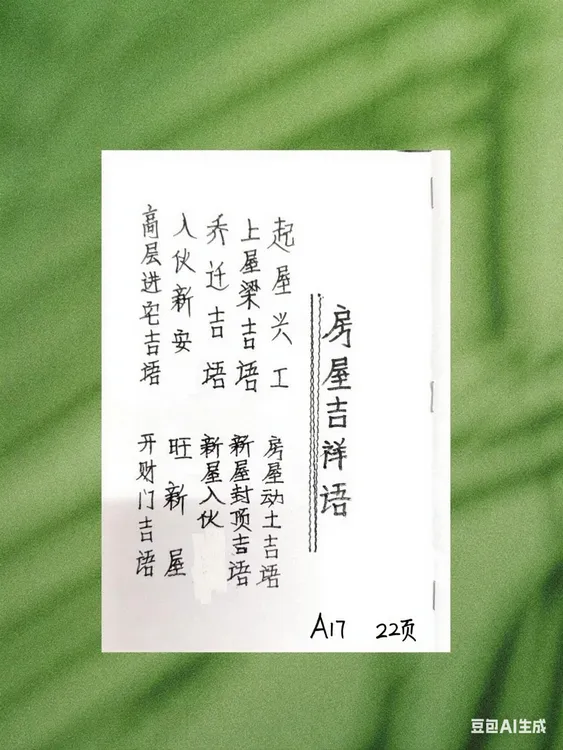 房屋吉祥语
起屋兴工
房屋动土吉语
上屋梁吉语
新屋封顶吉语
乔迁吉语
新屋入伙
入伙新安
旺新屋
高层进宅吉语
开财门吉语
A17 22页
豆包AI生成